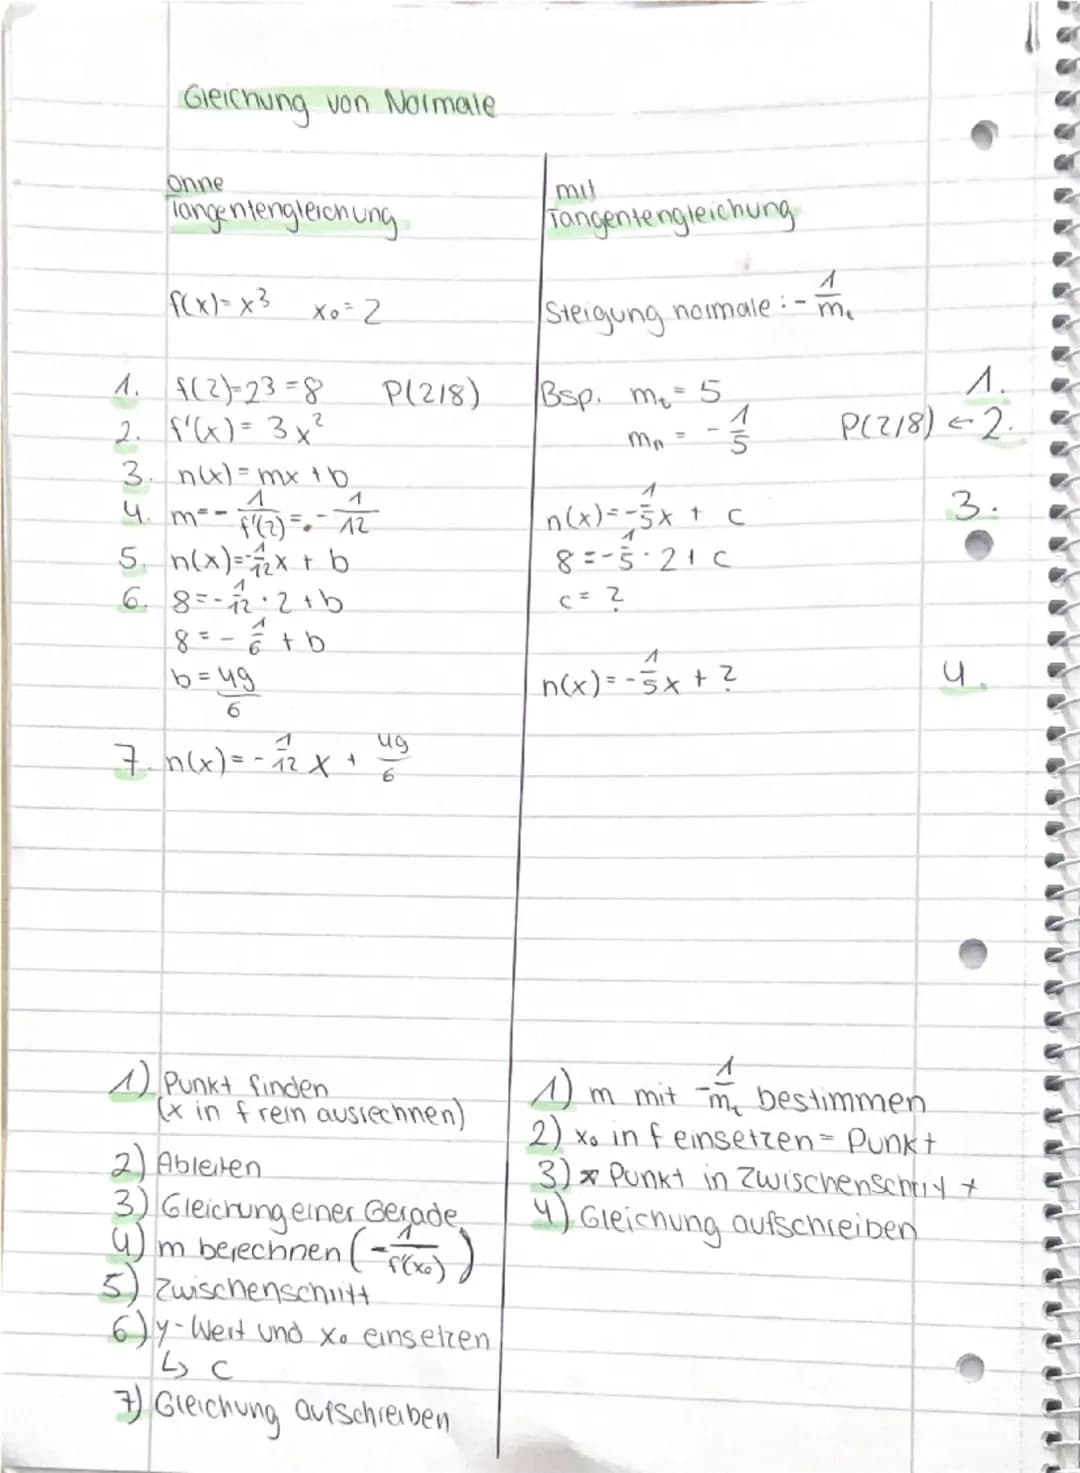 Gleichung von Normale
ohne
Tangentengleichung
f(x)=x³ x₀=2
1. f(2)=2³=8 P(2/8)
2. f'(x)=3x²
3. n(x)=mx+b
4. m=-1/f'(2)=-1/12
5. n(x)=-1/12x+b
6. 8=-1/12·2+b
8=-1/6+b
b=49/6
7. n(x)=-1/12x+49/6
1) Punkt finden
(x in f rein ausrechnen)
2) Ableiten
3) Gleichung einer Gerade
4) m berechnen (-1/f'(x₀))
5) Zwischenschritt
6) y-Wert und x₀ einsetzen
↳ c
7) Gleichung aufschreiben
mit
Tangentengleichung
Steigung normale: -1/mₜ
Bsp. mₜ=5 1.
mₙ=-1/5 P(2/8) ← 2.
n(x)=-1/5x+c 3.
8=-1/5·2+c
c=?
n(x)=-1/5x+? 4.
1) m mit -1/mₜ bestimmen
2) x₀ in f einsetzen = Punkt
3) Punkt in Zwischenschritt
4) Gleichung aufschreiben